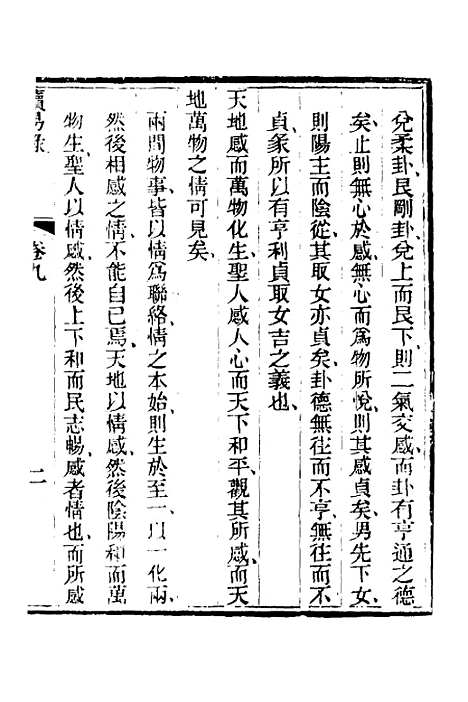 兌柔卦艮剛卦兌上而艮下則二氣交感而卦有亨通之德
矣止則無心於感無心而爲物所悅則其感貞矣男先下女
則陽主而陰從其取女亦貞矣卦德無往而不亨無往而不
貞彖所以有亨利貞取女吉之義也
天地感而萬物化生聖人感人心而天下和平觀其所感而天
地萬物之情可見矣
兩間物事皆以情爲聯絡情之本始則生於至一以一化兩
然後相感之情不能自已焉天地以情感然後陰陽和而萬
物生聖人以情感然後上下和而民志暢感者情也而所感
讀易錄
卷九
二